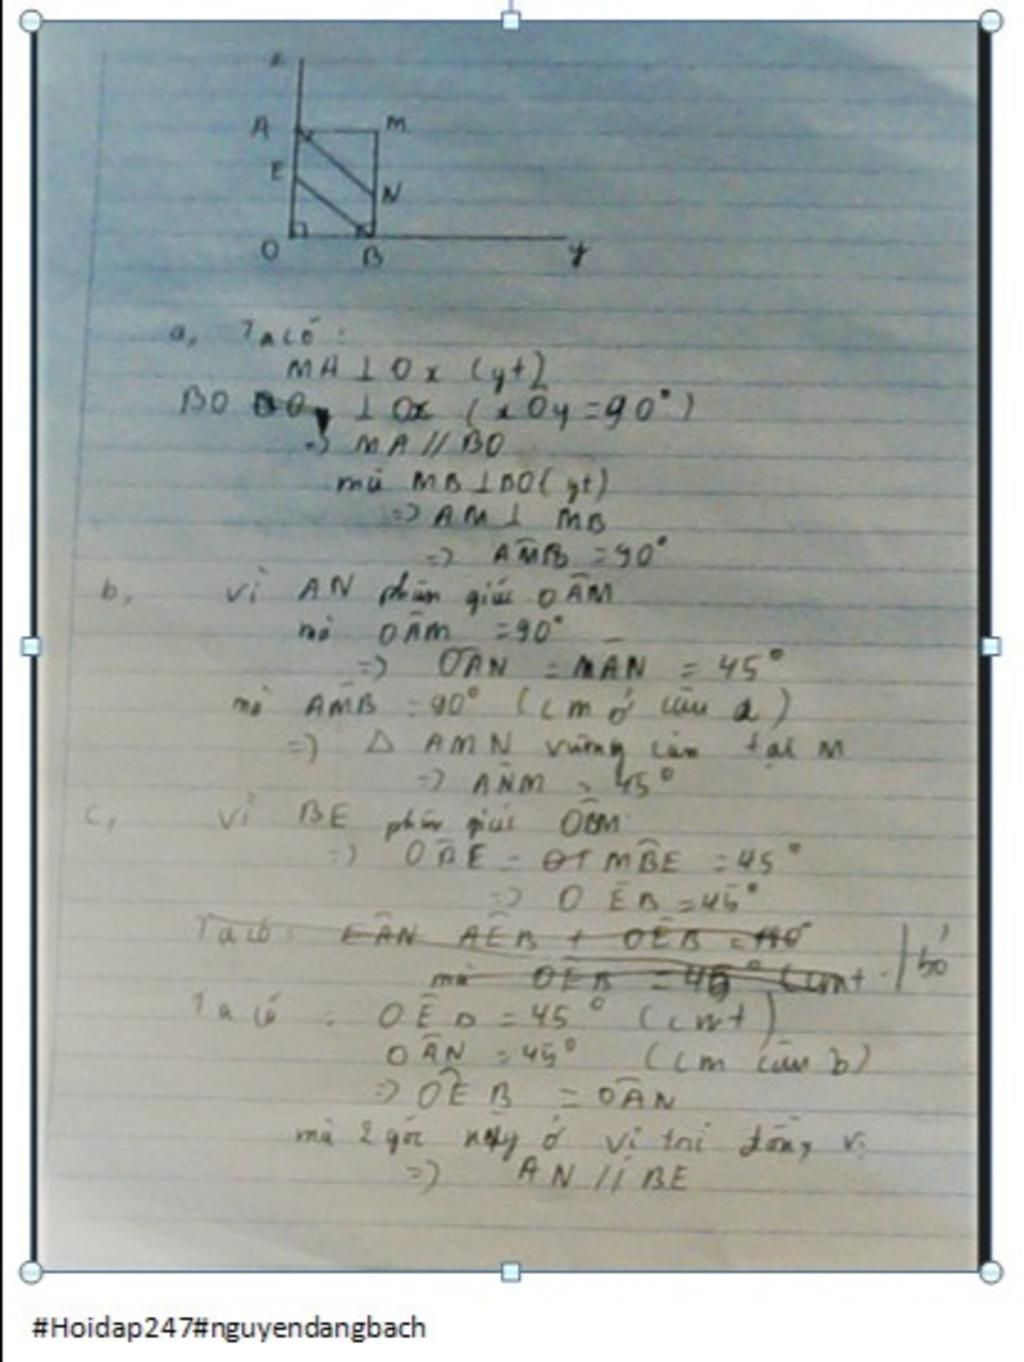 x
A M
E
N
O B y
a, Ta có:
MA ⊥ Ox (gt)
BO ⊥ Ox (xÔy = 90°)
=> MA // BO
mà MB ⊥ BO (gt)
=> AM ⊥ MB
=> AM̂B = 90°
b, vì AN phân giác OÂM
mà OÂM = 90°
=> OÂN = MÂN = 45°
mà AM̂B = 90° (cm ở câu a)
=> Δ AMN vuông cân tại M
=> AN̂M = 45°
c, vì BE phân giác OB̂M
=> OB̂E = MB̂E = 45°
=> OÊB = 45°
Ta có: EÂN AÊB + OÊB = 180°
mà OÊB = 45° (cmt bỏ
Ta có: OÊB = 45° (cmt)
OÂN = 45° (cm câu b)
=> OÊB = OÂN
mà 2 góc này ở vị trí đồng vị
=> AN // BE
#Hoidap247#nguyendangbach